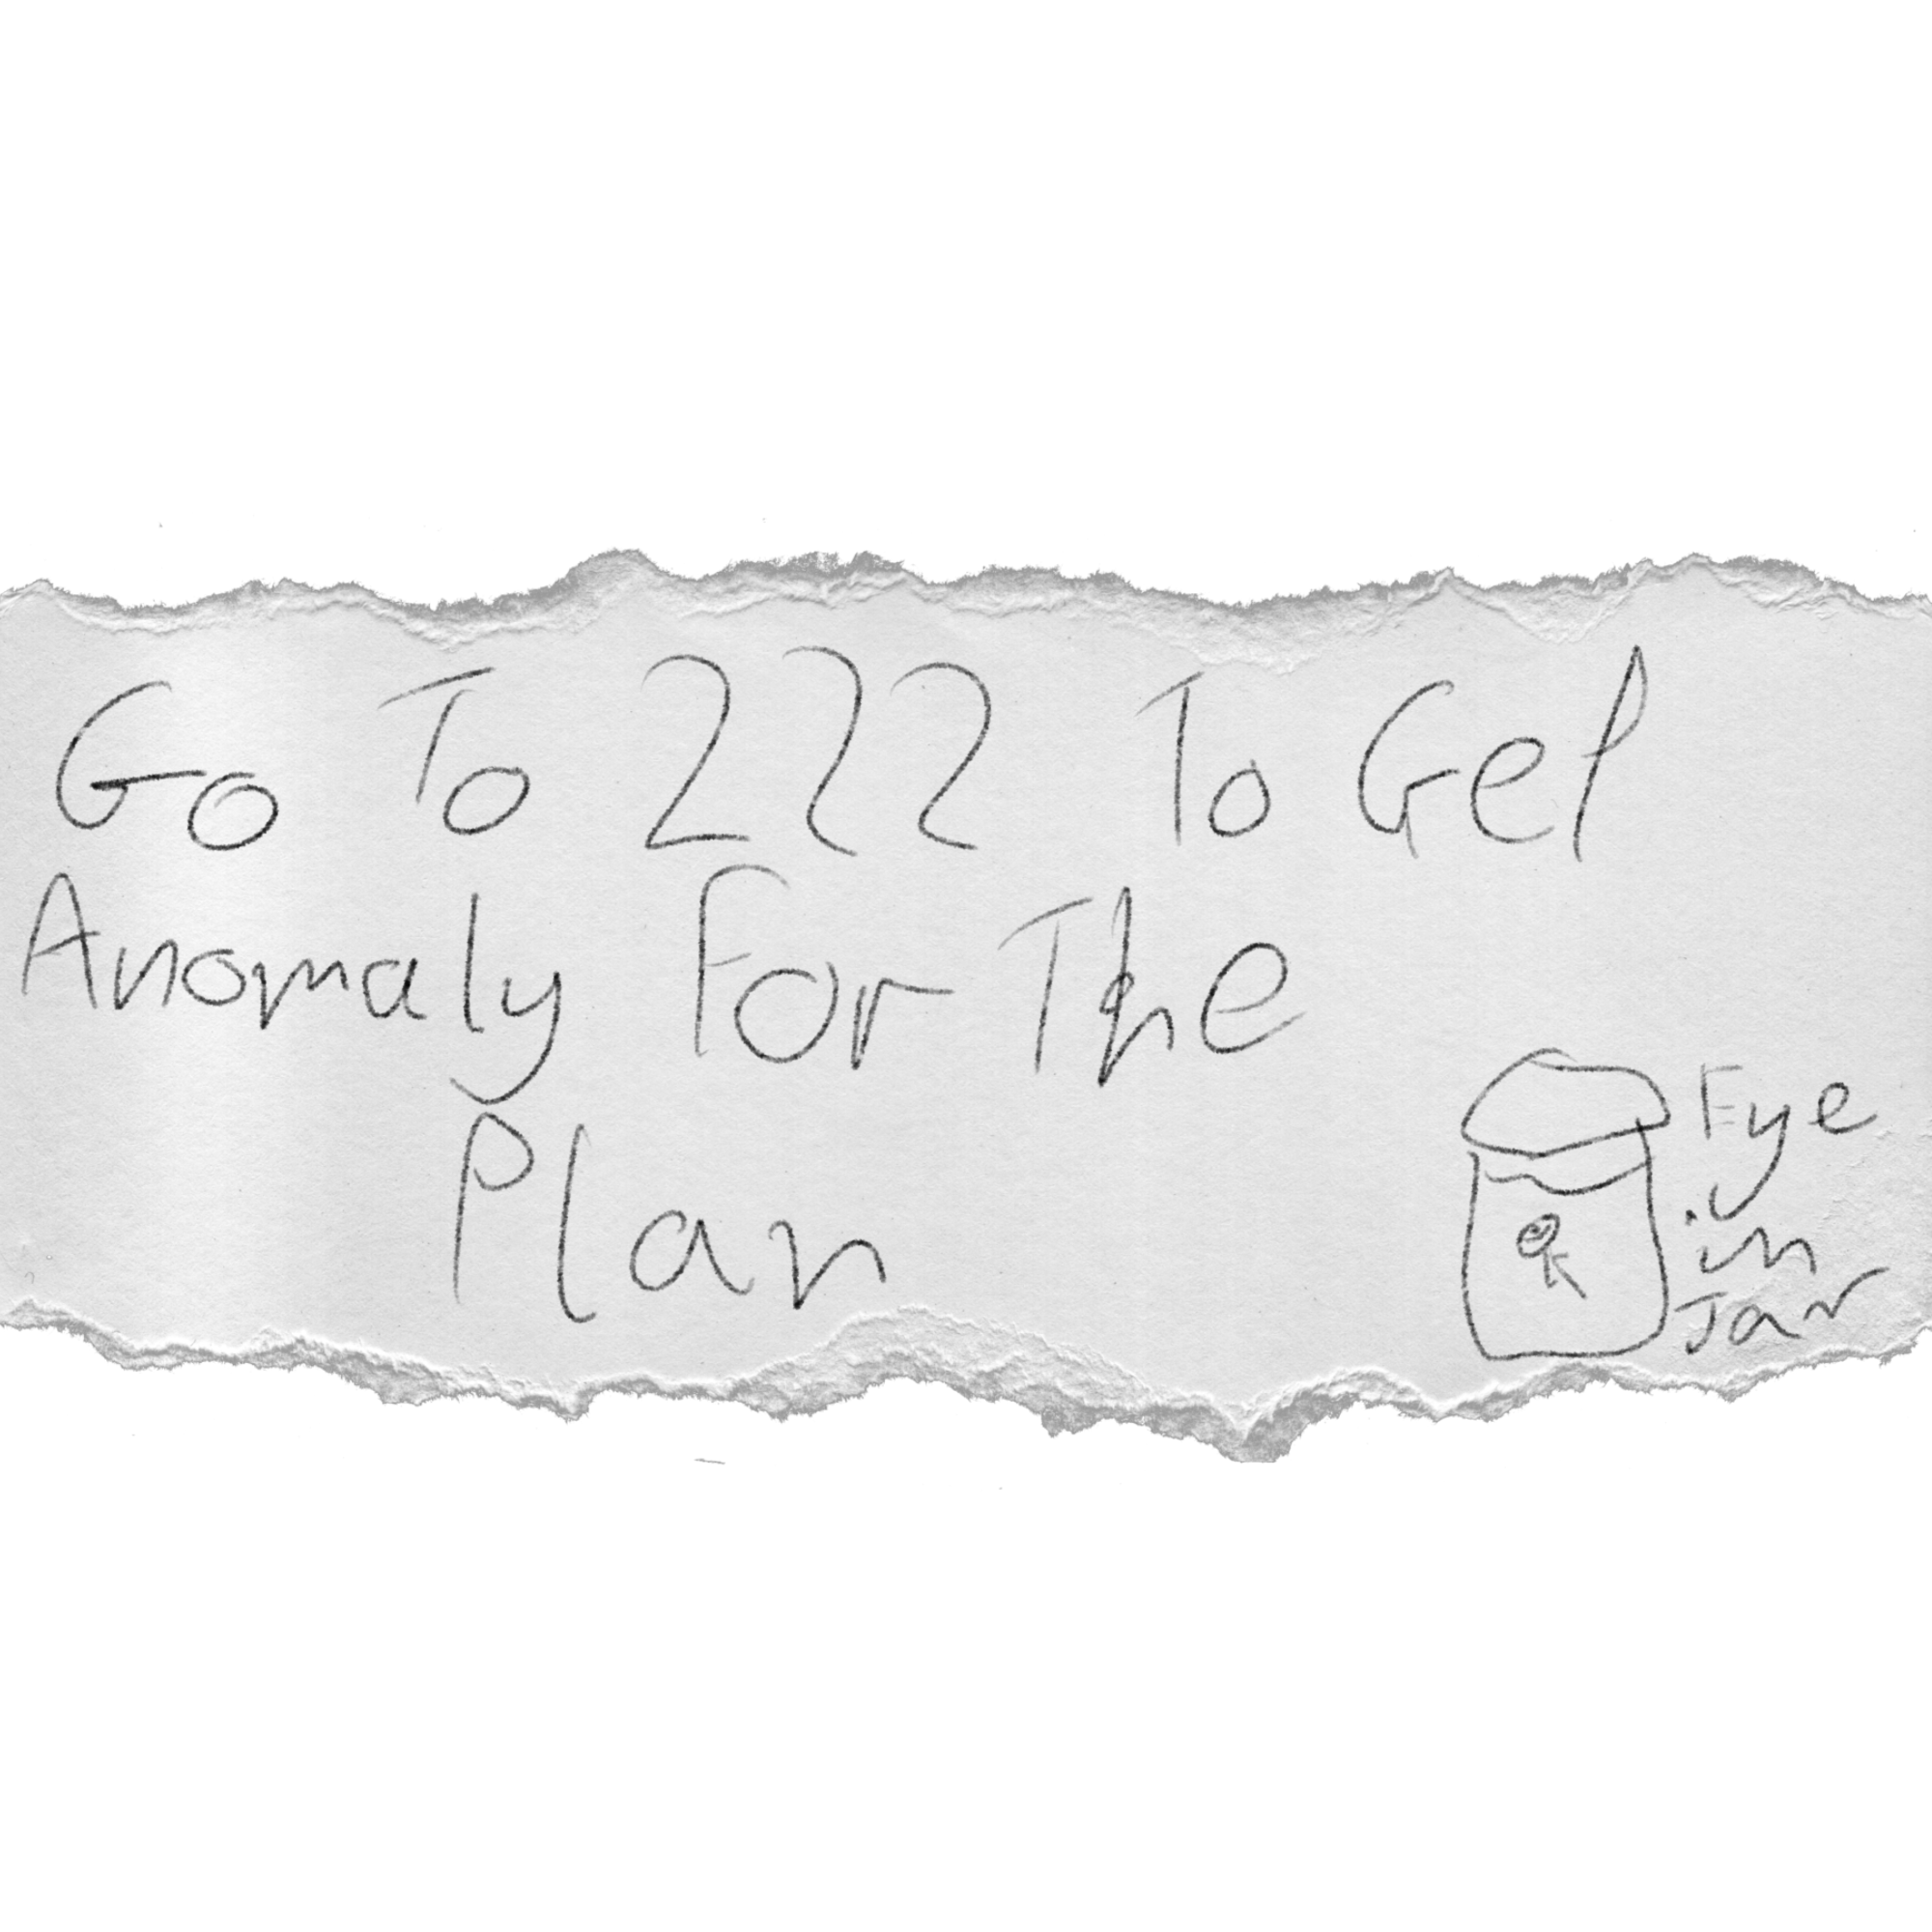 Go To 222 To Get
Anomaly For The
Plan
Eye
in
Jar